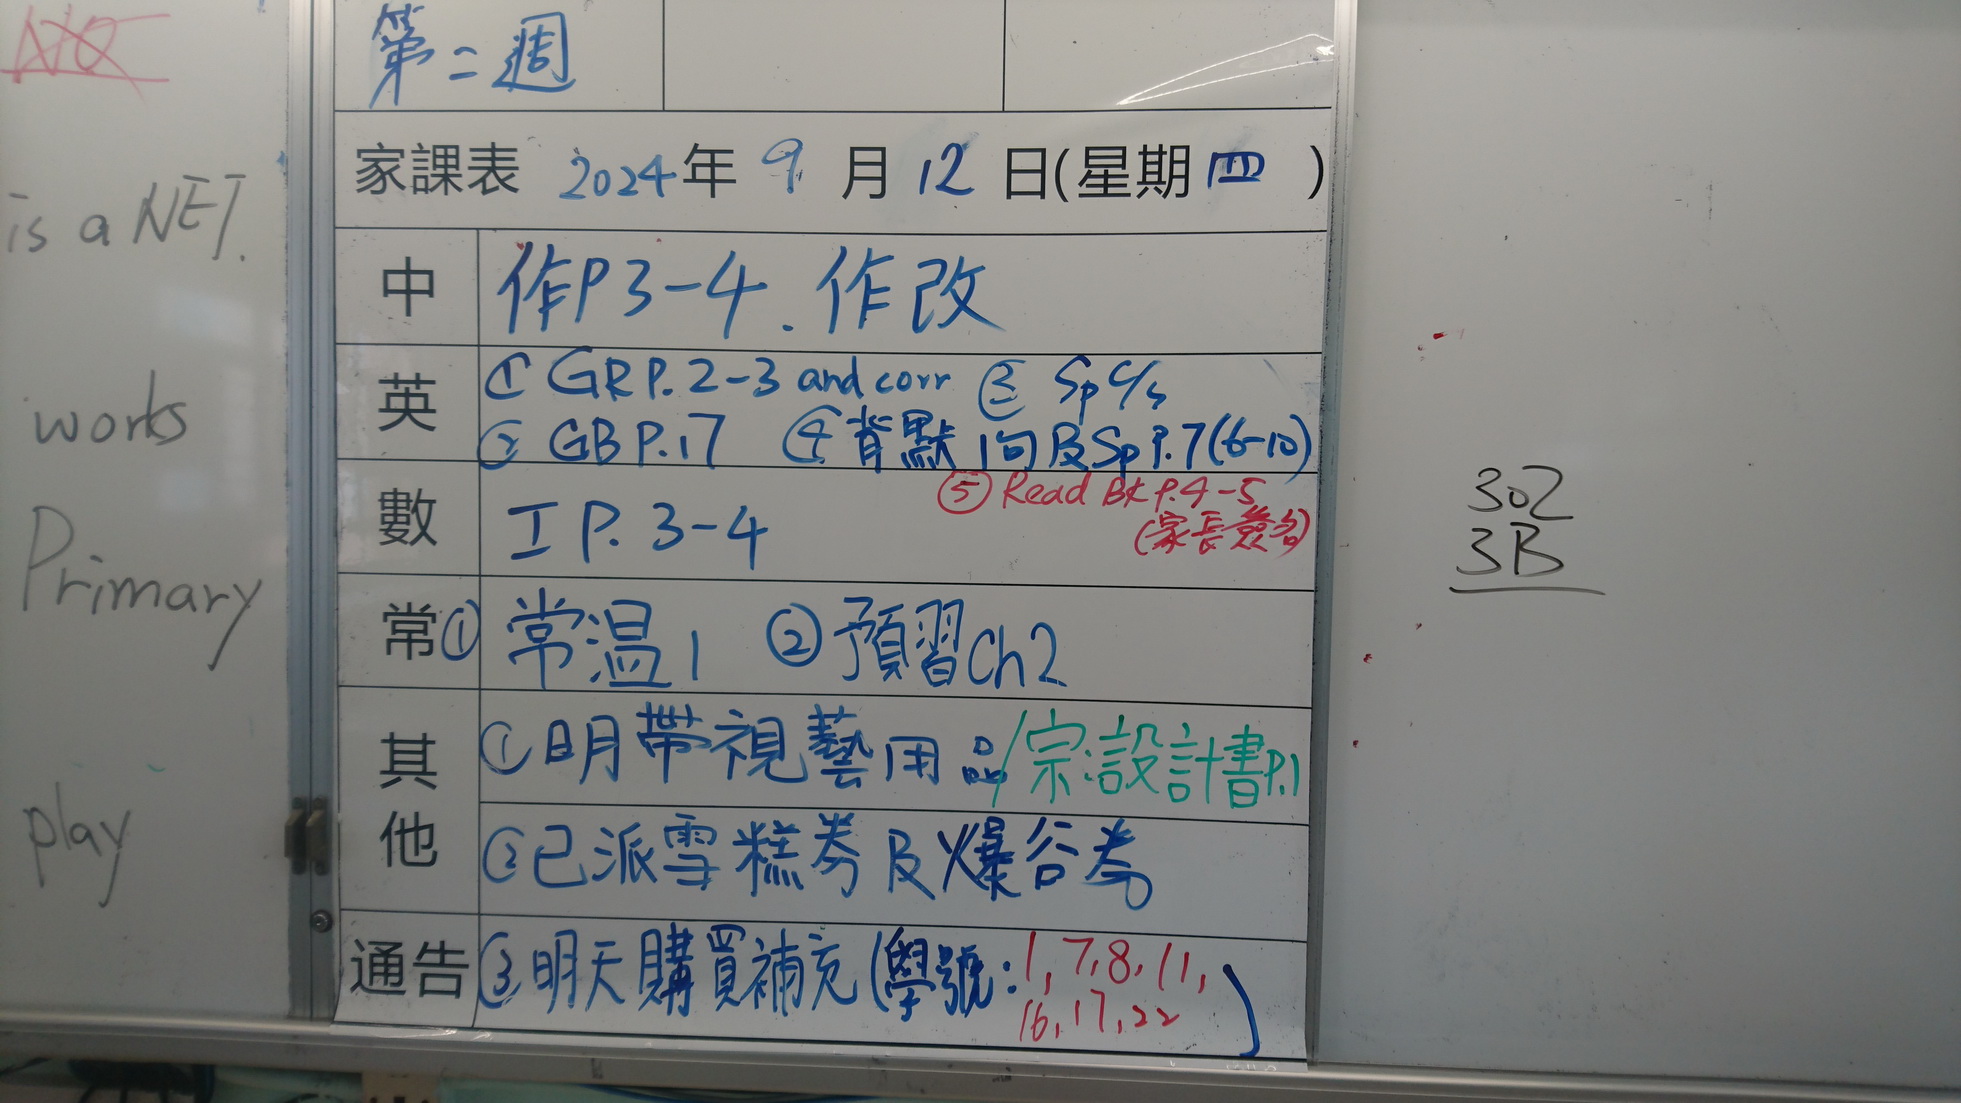 is a NET.
works
Primary
play
第二週
家課表 2024年 9 月 12 日(星期 四 )
中 作P3-4. 作改
英 ① GR P.2-3 and corr ③ Sp c/s
② GB P.17 ④ 背默 1句 及 Sp P.7(6-10)
⑤ Read Bk P.4-5
(家長簽名)
數 I P. 3-4
常 ① 常温1 ②預習Ch2
其他 ①明帶視藝用品/宗:設計書P.1
②已派雪糕券及爆谷券
通告 ③明天購買補充(學號:1, 7, 8, 11,
16, 17, 22)
302
3B